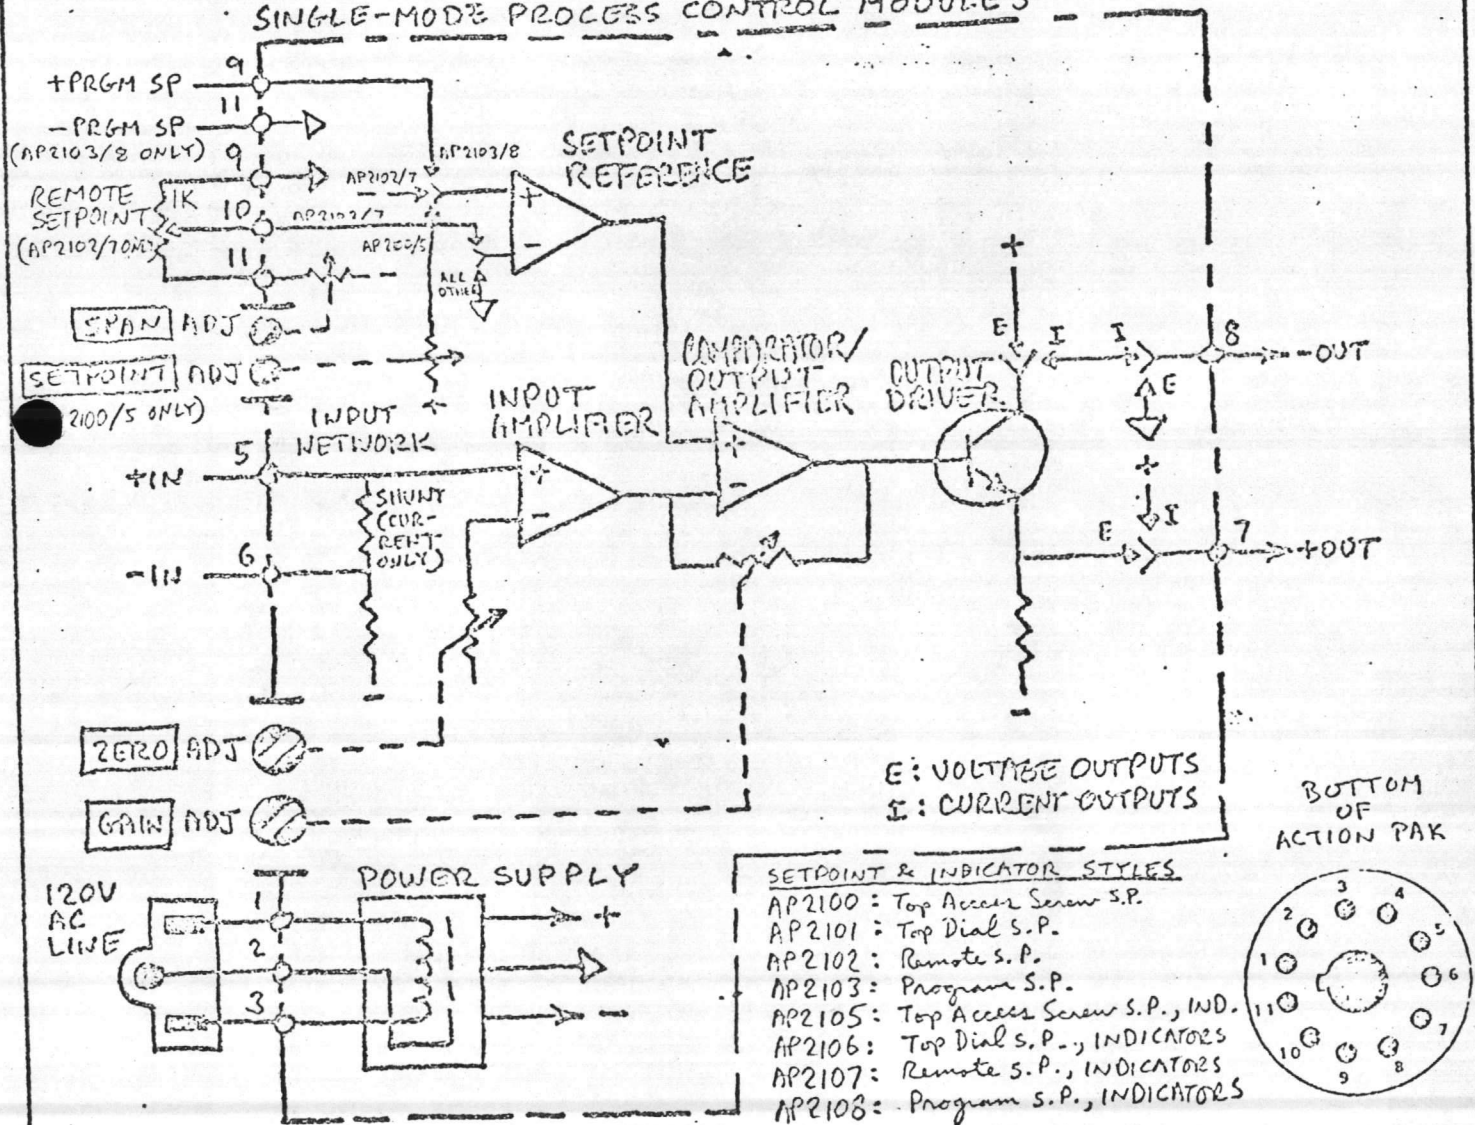 SINGLE-MODE PROCESS CONTROL MODULES
+PRGM SP
9
11
-PRGM SP
(AP2103/8 ONLY)
9
REMOTE
SETPOINT
1K
10
11
AP2103/8
AP2102/7
AP2102/7
ALL
OTHER
+
-
SETPOINT
REFERENCE
SPAN ADJ
SETPOINT ADJ
2100/5 ONLY)
INPUT
NETWORK
INPUT
AMPLIFIER
OUTPUT
AMPLIFIER
OUTPUT
DRIVER
+
E
I
I
8
-OUT
E
5
+IN
+
+
-
SHUNT
(CUR-
RENT
ONLY)
+
I
E
7
+OUT
6
-IN
-
-
ZERO ADJ
GAIN ADJ
E: VOLTAGE OUTPUTS
I: CURRENT OUTPUTS
120V
AC
LINE
1
2
3
POWER SUPPLY
+
-
SETPOINT & INDICATOR STYLES
AP2100: Top Access Screw S.P.
AP2101: Top Dial S.P.
AP2102: Remote S.P.
AP2103: Program S.P.
AP2105: Top Access Screw S.P., IND.
AP2106: Top Dial S.P., INDICATORS
AP2107: Remote S.P., INDICATORS
AP2108: Program S.P., INDICATORS
BOTTOM
OF
ACTION PAK
3 4
2 5
1 6
11 7
10 8
9